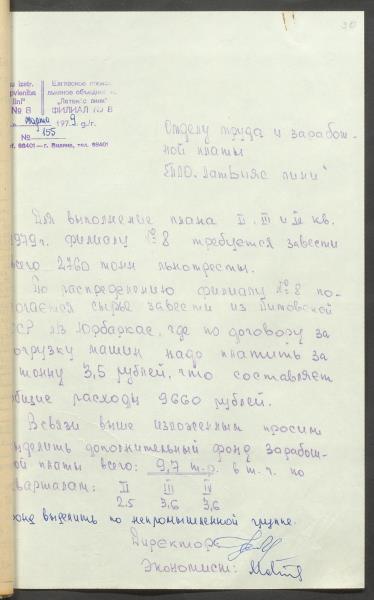 30
№ 8
Елгавское
льняное объедин
"Латвияс лини"
ФИЛИАЛ № 8
марта 1979 g./г.
№ 155
66401 — г. Вилина, тел. 66401
Отделу труда и заработ-
ной платы
ЕПЛО "Латвияс лини"
Для выполнение плана II, III и IV кв.
1979г. филиалу № 8 требуется завести
всего 2760 тонн льнотресты.
По распределению филиалу № 8 по-
лагается сырье завести из Литовской
ССР из Юрбаркас, где по договору за
погрузку машин надо платить за
тонну 3,5 рублей, что составляет
общие расходы 9660 рублей.
В связи выше изложенным просим
выделить дополнительный фонд заработ-
ной платы всего: 9,7 т.р. в т.ч. по
кварталам: II III IV
2.5 3,6 3,6
Фонд выделить по непромышленной группе.
Директор
Экономист: